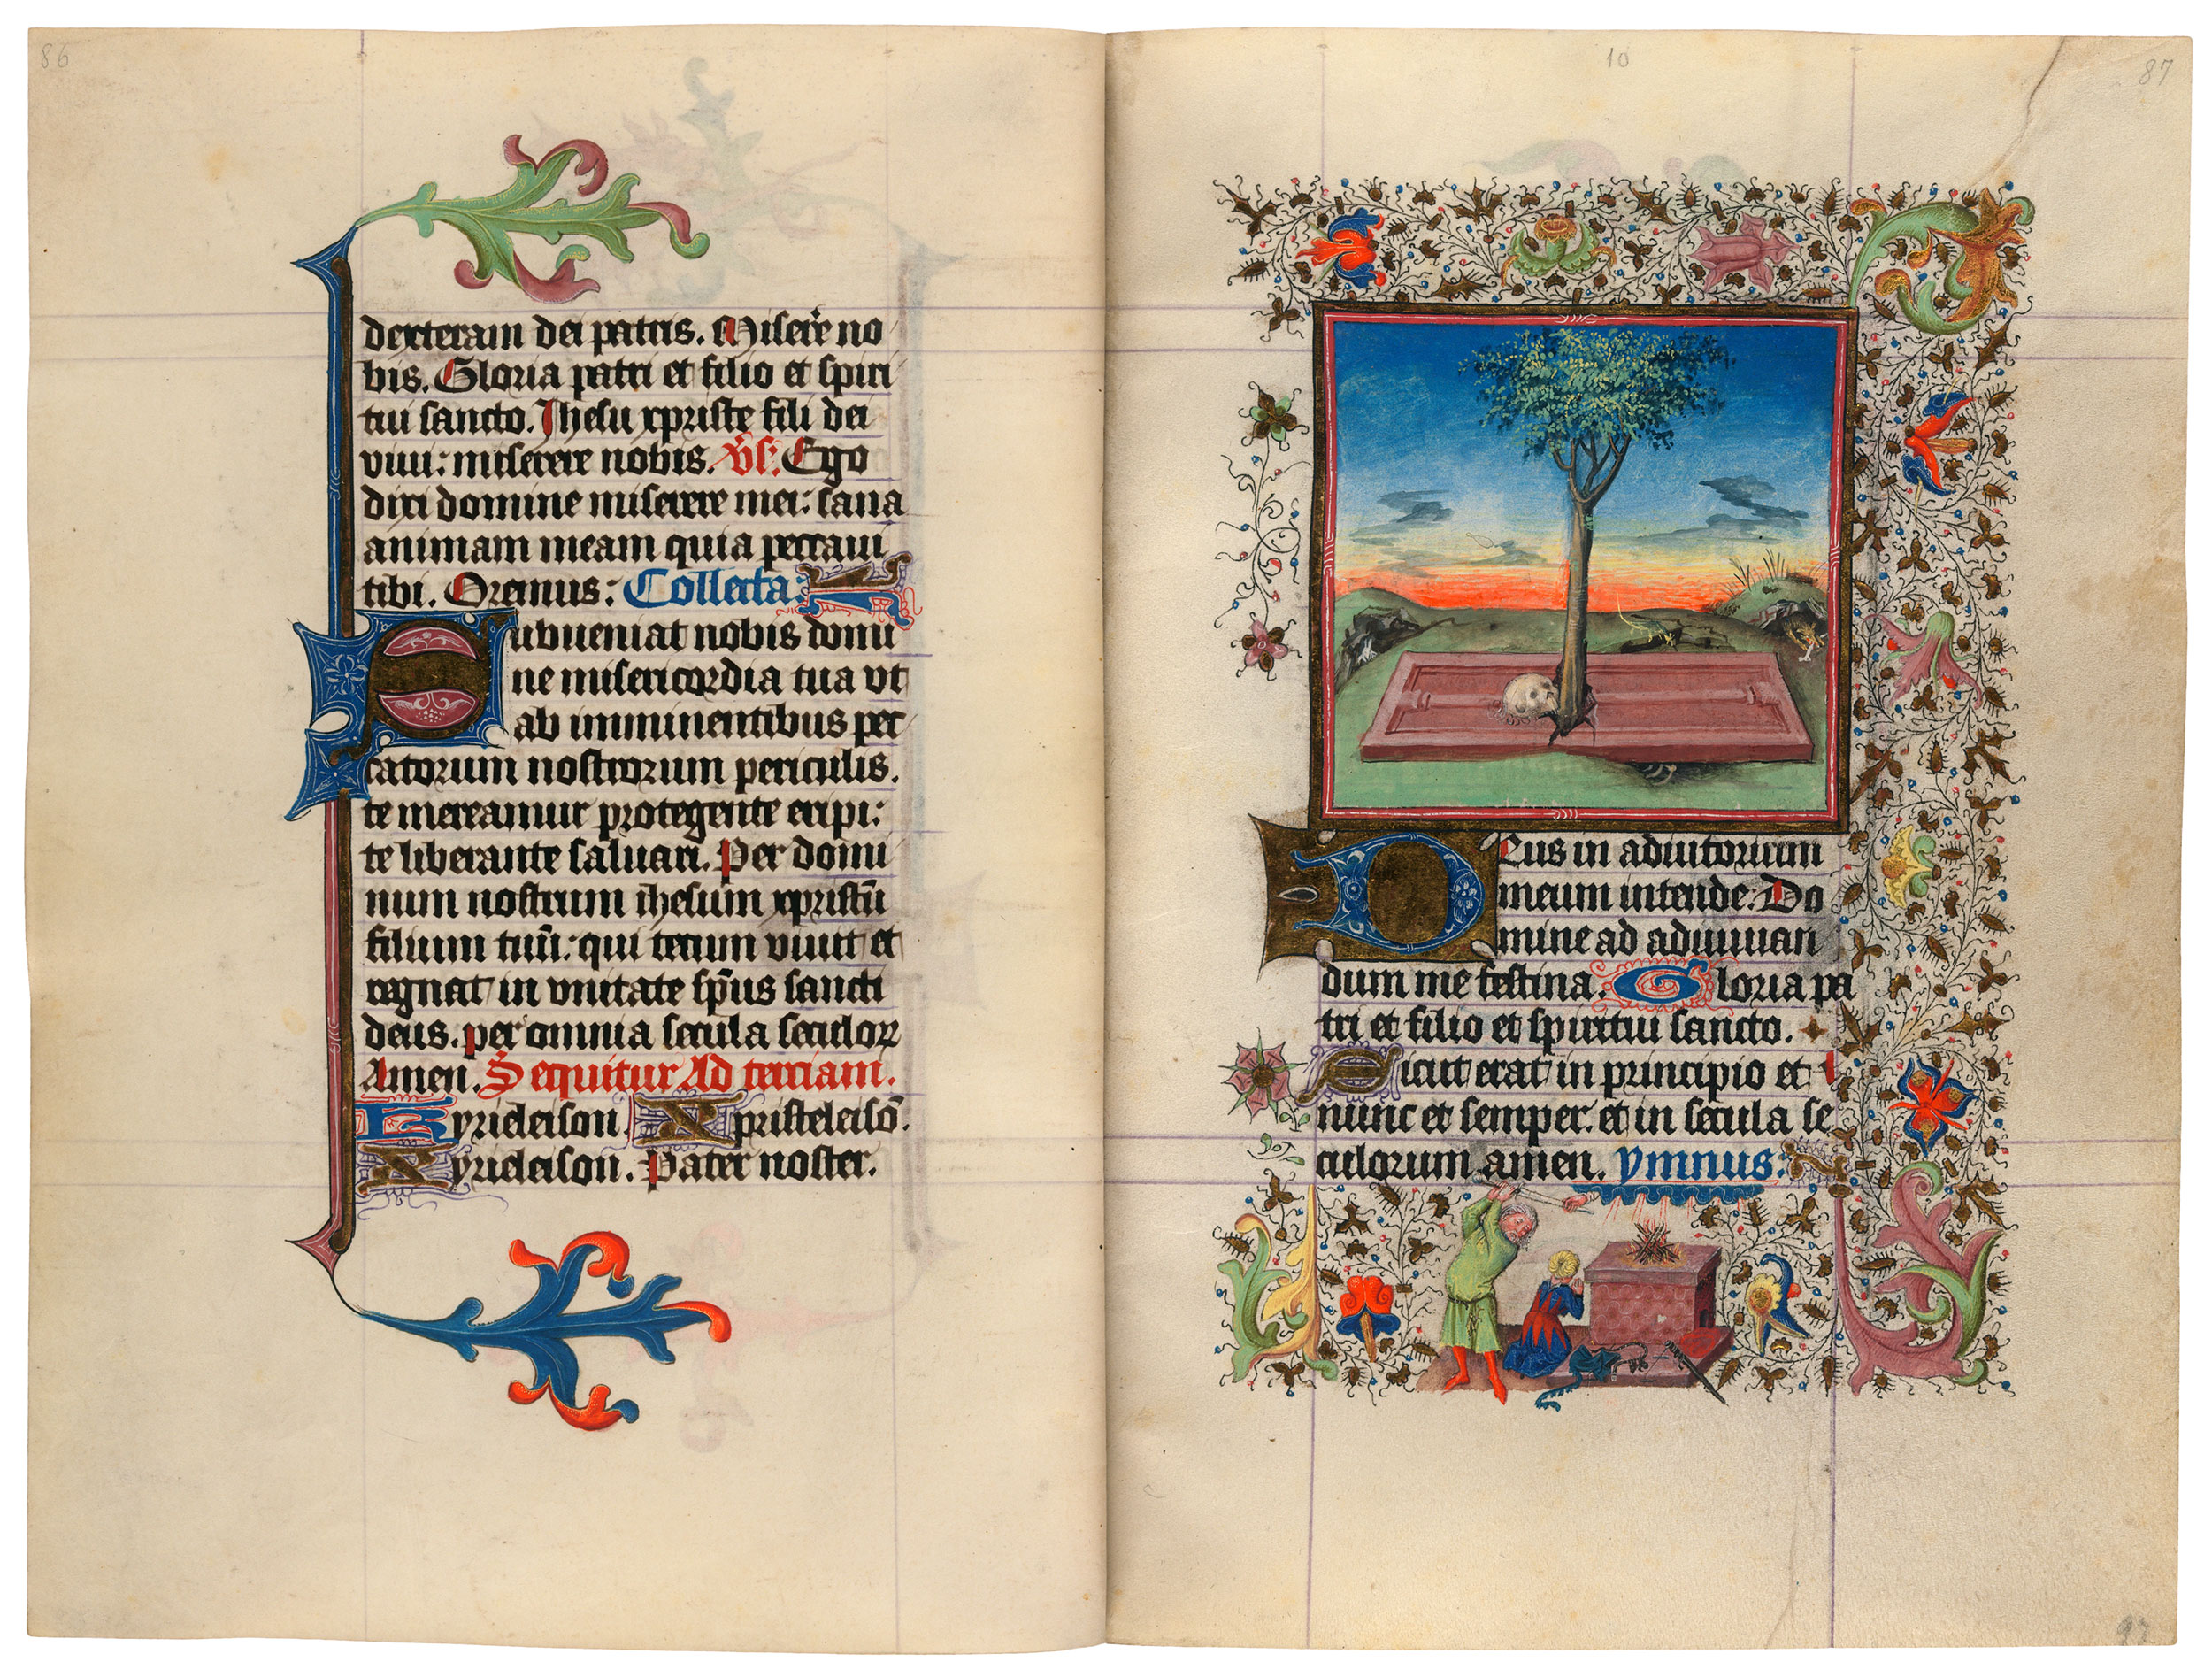 86
dexteram dei patris. Misere no
bis. Gloria patri et filio et spiri
tui sancto. Jhesu xpriste fili dei
viui: miserere nobis. Vs. Ego
dixi domine miserere mei: sana
animam meam quia peccaui
tibi. Oremus: Collecta:
Subueniat nobis domi
ne misericordia tua vt
ab imminentibus pec
catorum nostrorum periculis.
te mereamur protegente eripi:
te liberante saluari. Per domi
num nostrum ihesum xpristū
filium tuū: qui tecum viuit et
regnat in vnitate sp̄us sancti
deus. per omnia secula seculoꝝ
Amen. Sequitur Ad terciam.
Kyrieleison. Xpristeleisō.
Kyrieleison. Pater noster.
10
87
Deus in adiutorium
meum intende: Do
mine ad adiuuan
dum me festina. Gloria pa
tri et filio et spiritui sancto.
Sicut erat in principio et
nunc et semper: et in secula se
culorum amen. ymnus:
97